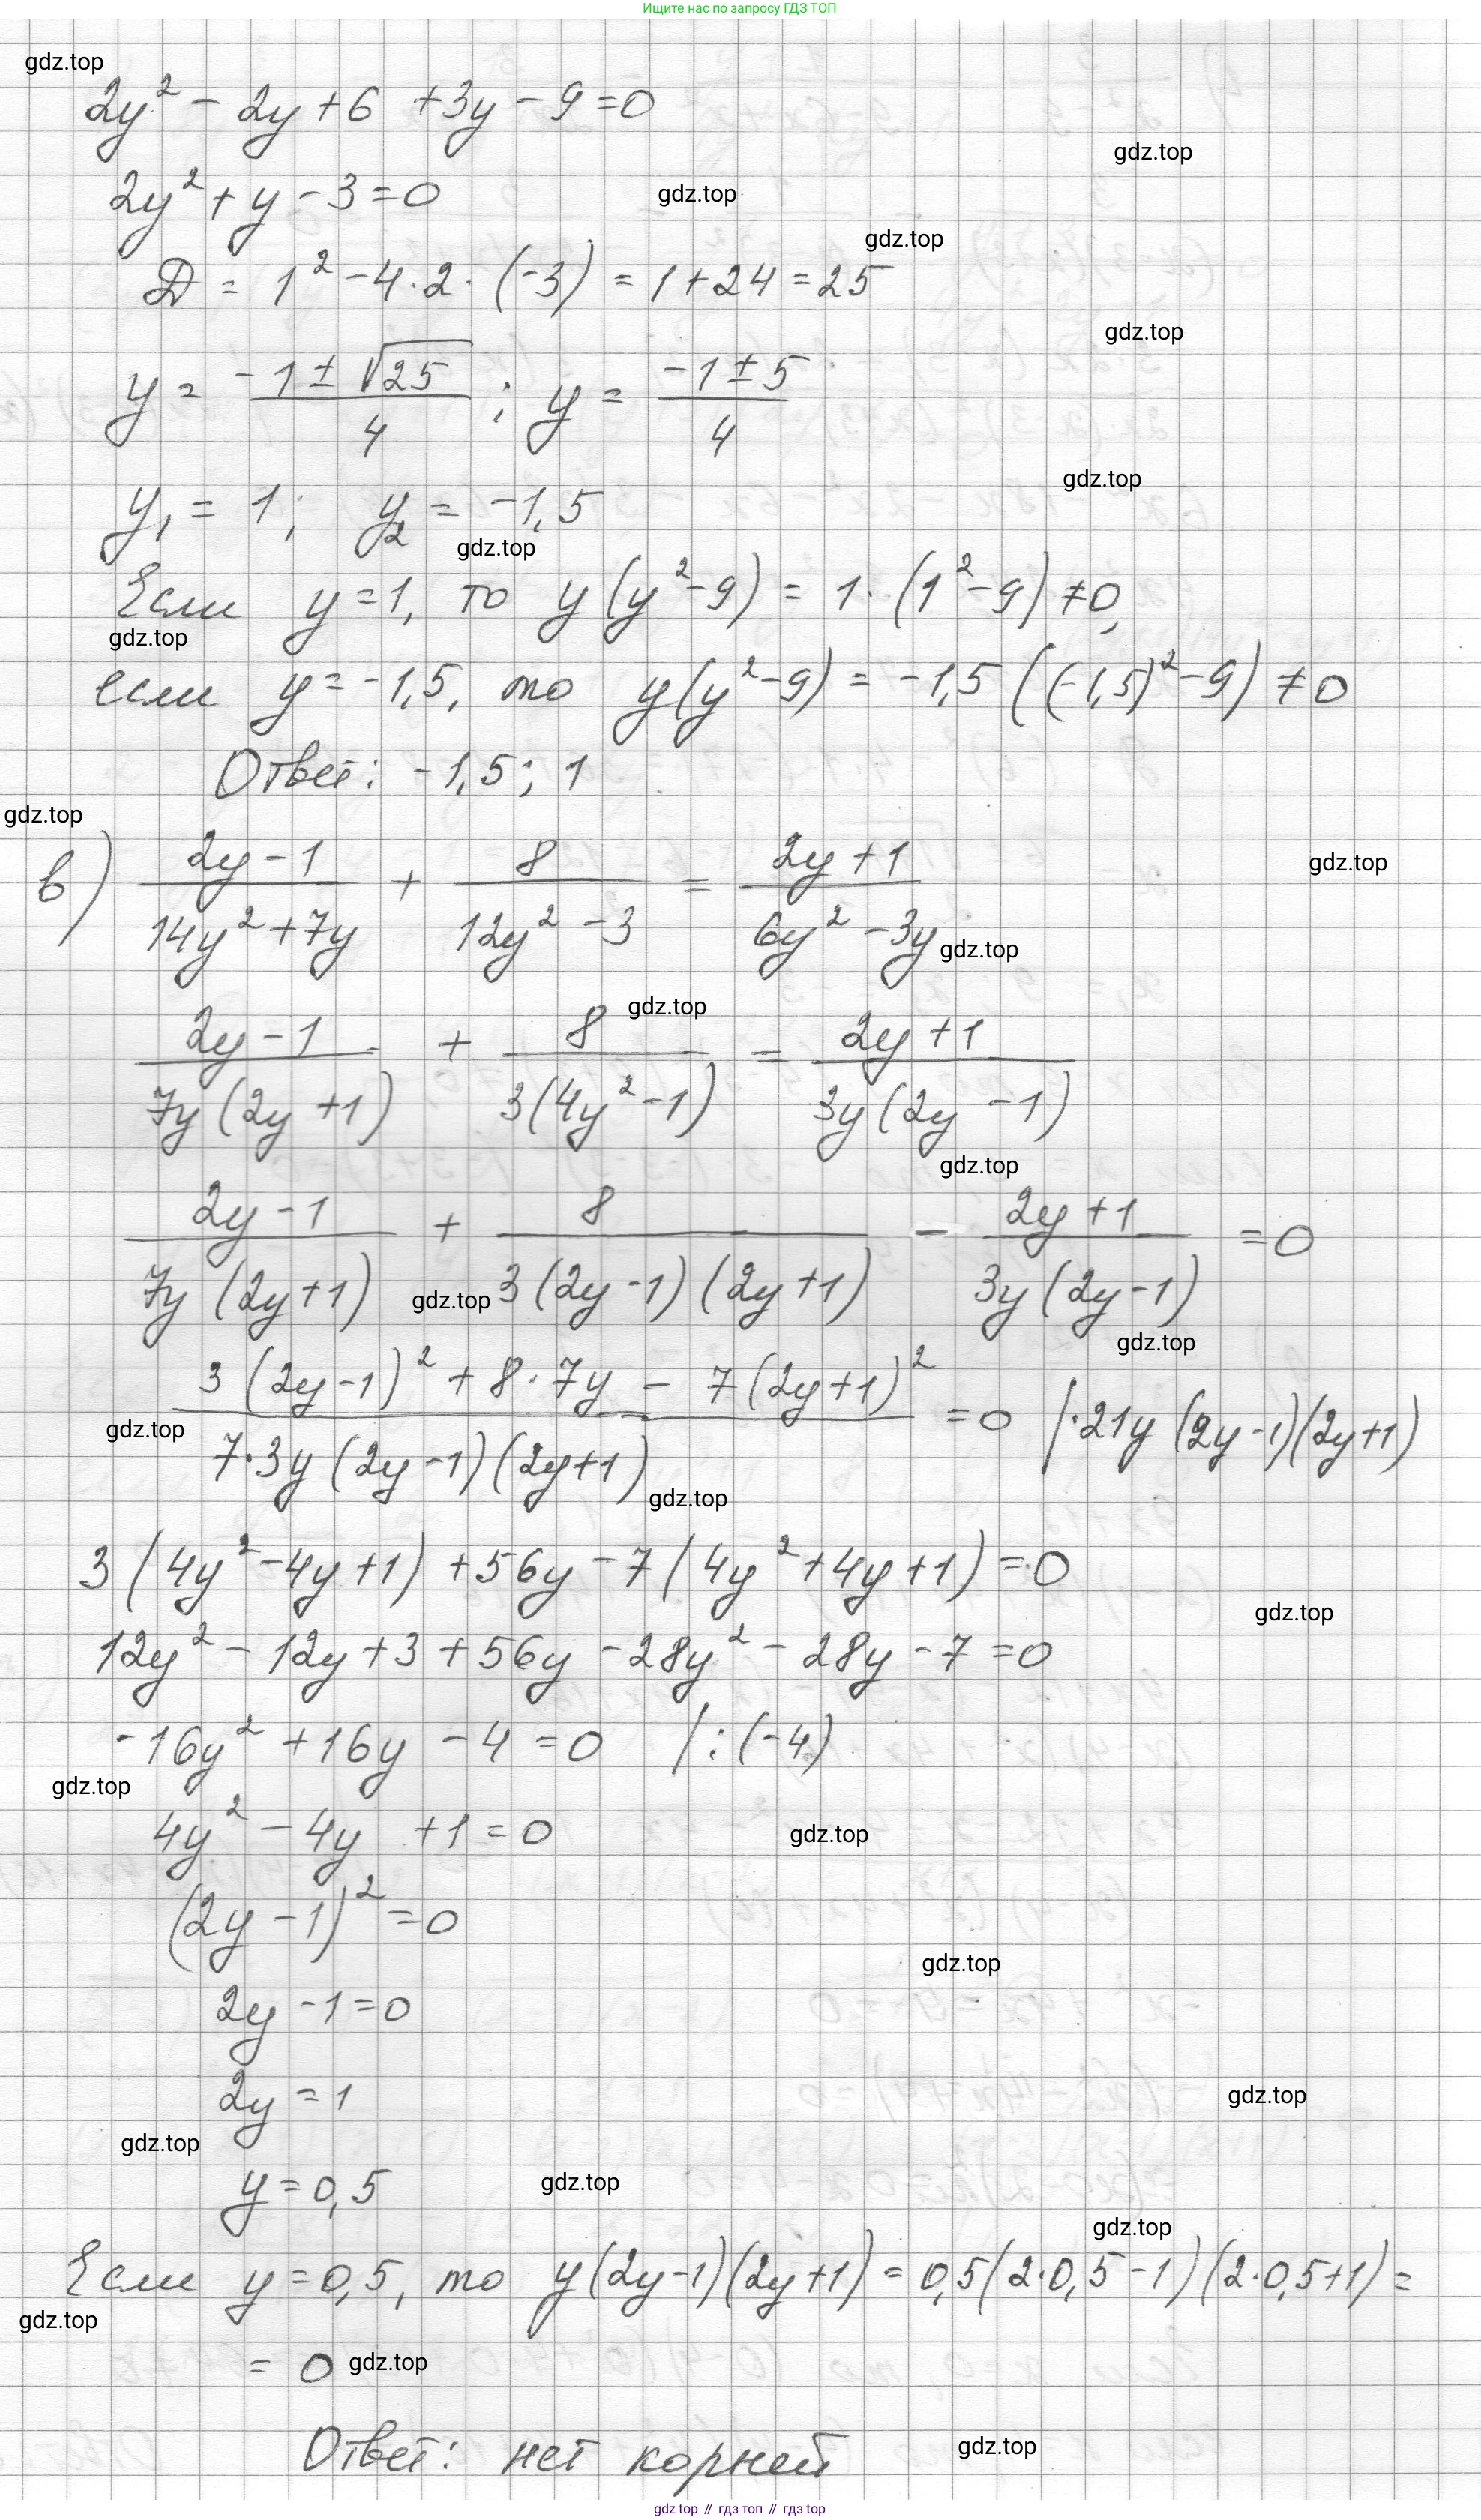 Ищите нас по запросу ГДЗ ТОП
gdz.top
2y² - 2y + 6 + 3y - 9 = 0
gdz.top
2y² + y - 3 = 0
gdz.top
gdz.top
D = 1² - 4·2·(-3) = 1 + 24 = 25
gdz.top
y = (-1 ± √25)/4 ; y = (-1 ± 5)/4
gdz.top
y₁ = 1; y₂ = -1,5
gdz.top
Если y = 1, то y(y² - 9) = 1·(1² - 9) ≠ 0,
gdz.top
если y = -1,5, то y(y² - 9) = -1,5((-1,5)² - 9) ≠ 0
Ответ: -1,5; 1
gdz.top
в) (2y - 1)/(14y² + 7y) + 8/(12y² - 3) = (2y + 1)/(6y² - 3y)
gdz.top
gdz.top
gdz.top
(2y - 1)/(7y(2y + 1)) + 8/(3(4y² - 1)) = (2y + 1)/(3y(2y - 1))
gdz.top
(2y - 1)/(7y(2y + 1)) + 8/(3(2y - 1)(2y + 1)) - (2y + 1)/(3y(2y - 1)) = 0
gdz.top
gdz.top
(3(2y - 1)² + 8·7y - 7(2y + 1)²)/(7·3y(2y - 1)(2y + 1)) = 0 |·21y(2y - 1)(2y + 1)
gdz.top
gdz.top
3(4y² - 4y + 1) + 56y - 7(4y² + 4y + 1) = 0
gdz.top
12y² - 12y + 3 + 56y - 28y² - 28y - 7 = 0
-16y² + 16y - 4 = 0 |:(-4)
gdz.top
4y² - 4y + 1 = 0
gdz.top
(2y - 1)² = 0
gdz.top
2y - 1 = 0
2y = 1
gdz.top
gdz.top
y = 0,5
gdz.top
gdz.top
Если y = 0,5, то y(2y - 1)(2y + 1) = 0,5(2·0,5 - 1)(2·0,5 + 1) =
gdz.top
= 0
gdz.top
Ответ: нет корней
gdz.top
gdz top // гдз топ // gdz top